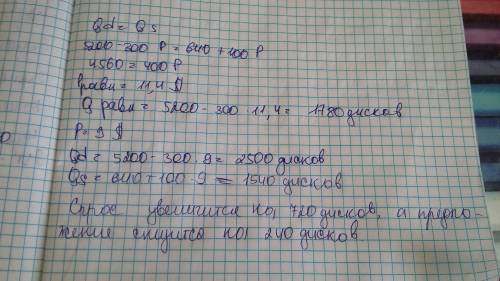 Qd = Qs
5200-300 P = 640 + 100 P
4560 = 400 P
Pравн = 11,4 $
Q равн = 5200 - 300 · 11,4 = 1780 дисков
P = 9 $
Qd = 5200 - 300 · 9 = 2500 дисков
Qs = 640 + 100 · 9 = 1540 дисков
Спрос увеличится на 720 дисков, а предло-
жение снизится на 240 дисков